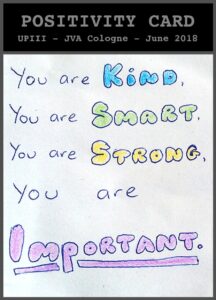 POSITIVITY CARD
UPIII - JVA Cologne - June 2018
You are KIND,
You are SMART,
You are STRONG,
You are
IMPORTANT.